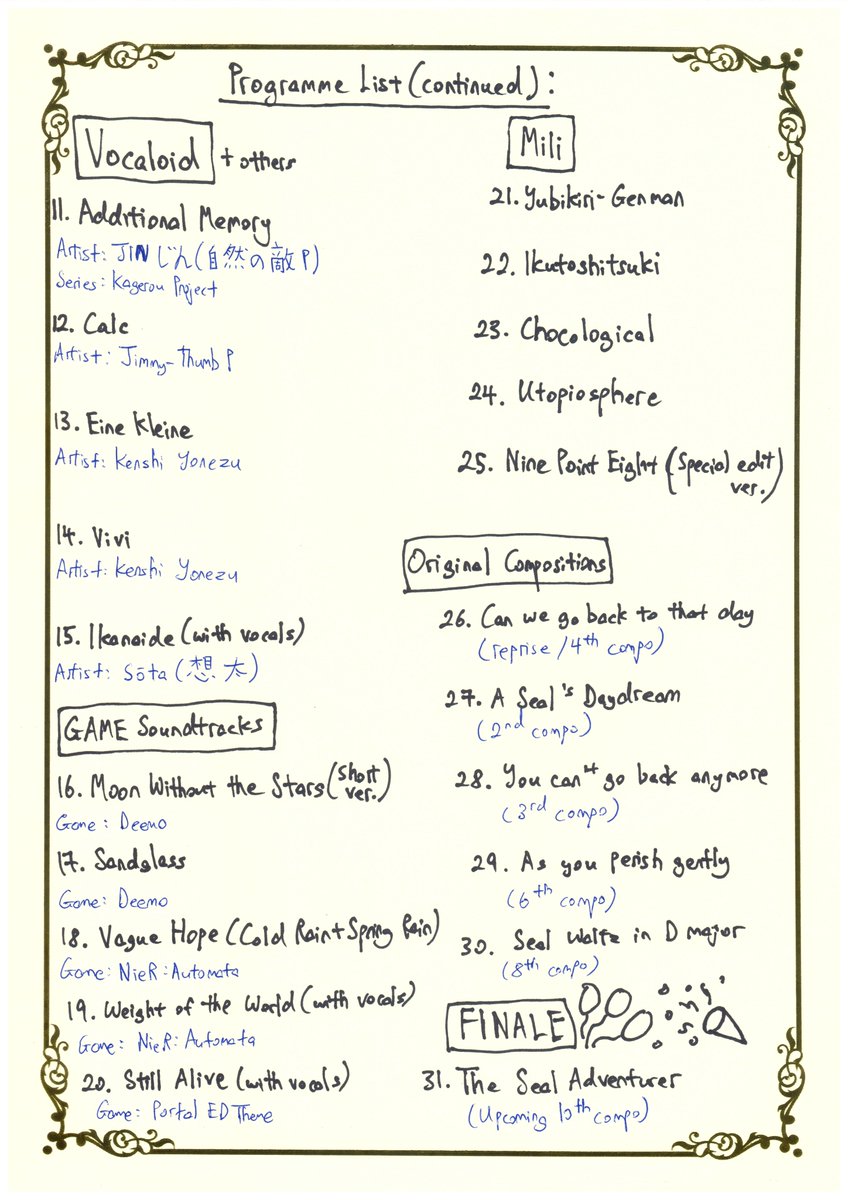 Programme List (continued):
Vocaloid + others
11. Additional Memory
Artist: JIN じん(自然の敵P)
Series: Kagerou Project
12. Calc
Artist: Jimmy-Thumb P
13. Eine Kleine
Artist: Kenshi Yonezu
14. Vivi
Artist: Kenshi Yonezu
15. Ikanaide (with vocals)
Artist: Sōta (想太)
GAME Soundtracks
16. Moon Without the Stars (short ver.)
Game: Deemo
17. Sandglass
Game: Deemo
18. Vague Hope (Cold Rain + Spring Rain)
Game: NieR:Automata
19. Weight of the World (with vocals)
Game: NieR:Automata
20. Still Alive (with vocals)
Game: Portal ED Theme
Mili
21. Yubikiri-Genman
22. Ikutoshitsuki
23. Chocological
24. Utopiosphere
25. Nine Point Eight (Special edit ver.)
Original Compositions
26. Can we go back to that day
(reprise / 4th compo)
27. A Seal's Daydream
(2nd compo)
28. You can't go back anymore
(3rd compo)
29. As you perish gently
(6th compo)
30. Seal Waltz in D major
(8th compo)
FINALE
31. The Seal Adventurer
(Upcoming 10th compo)